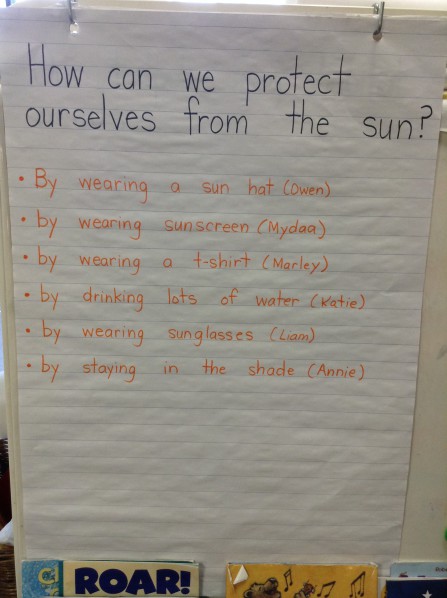 How can we protect
ourselves from the sun?
• By wearing a sun hat (Owen)
• by wearing sunscreen (Mydaa)
• by wearing a t-shirt (Marley)
• by drinking lots of water (Katie)
• by wearing sunglasses (Liam)
• by staying in the shade (Annie)
ROAR!